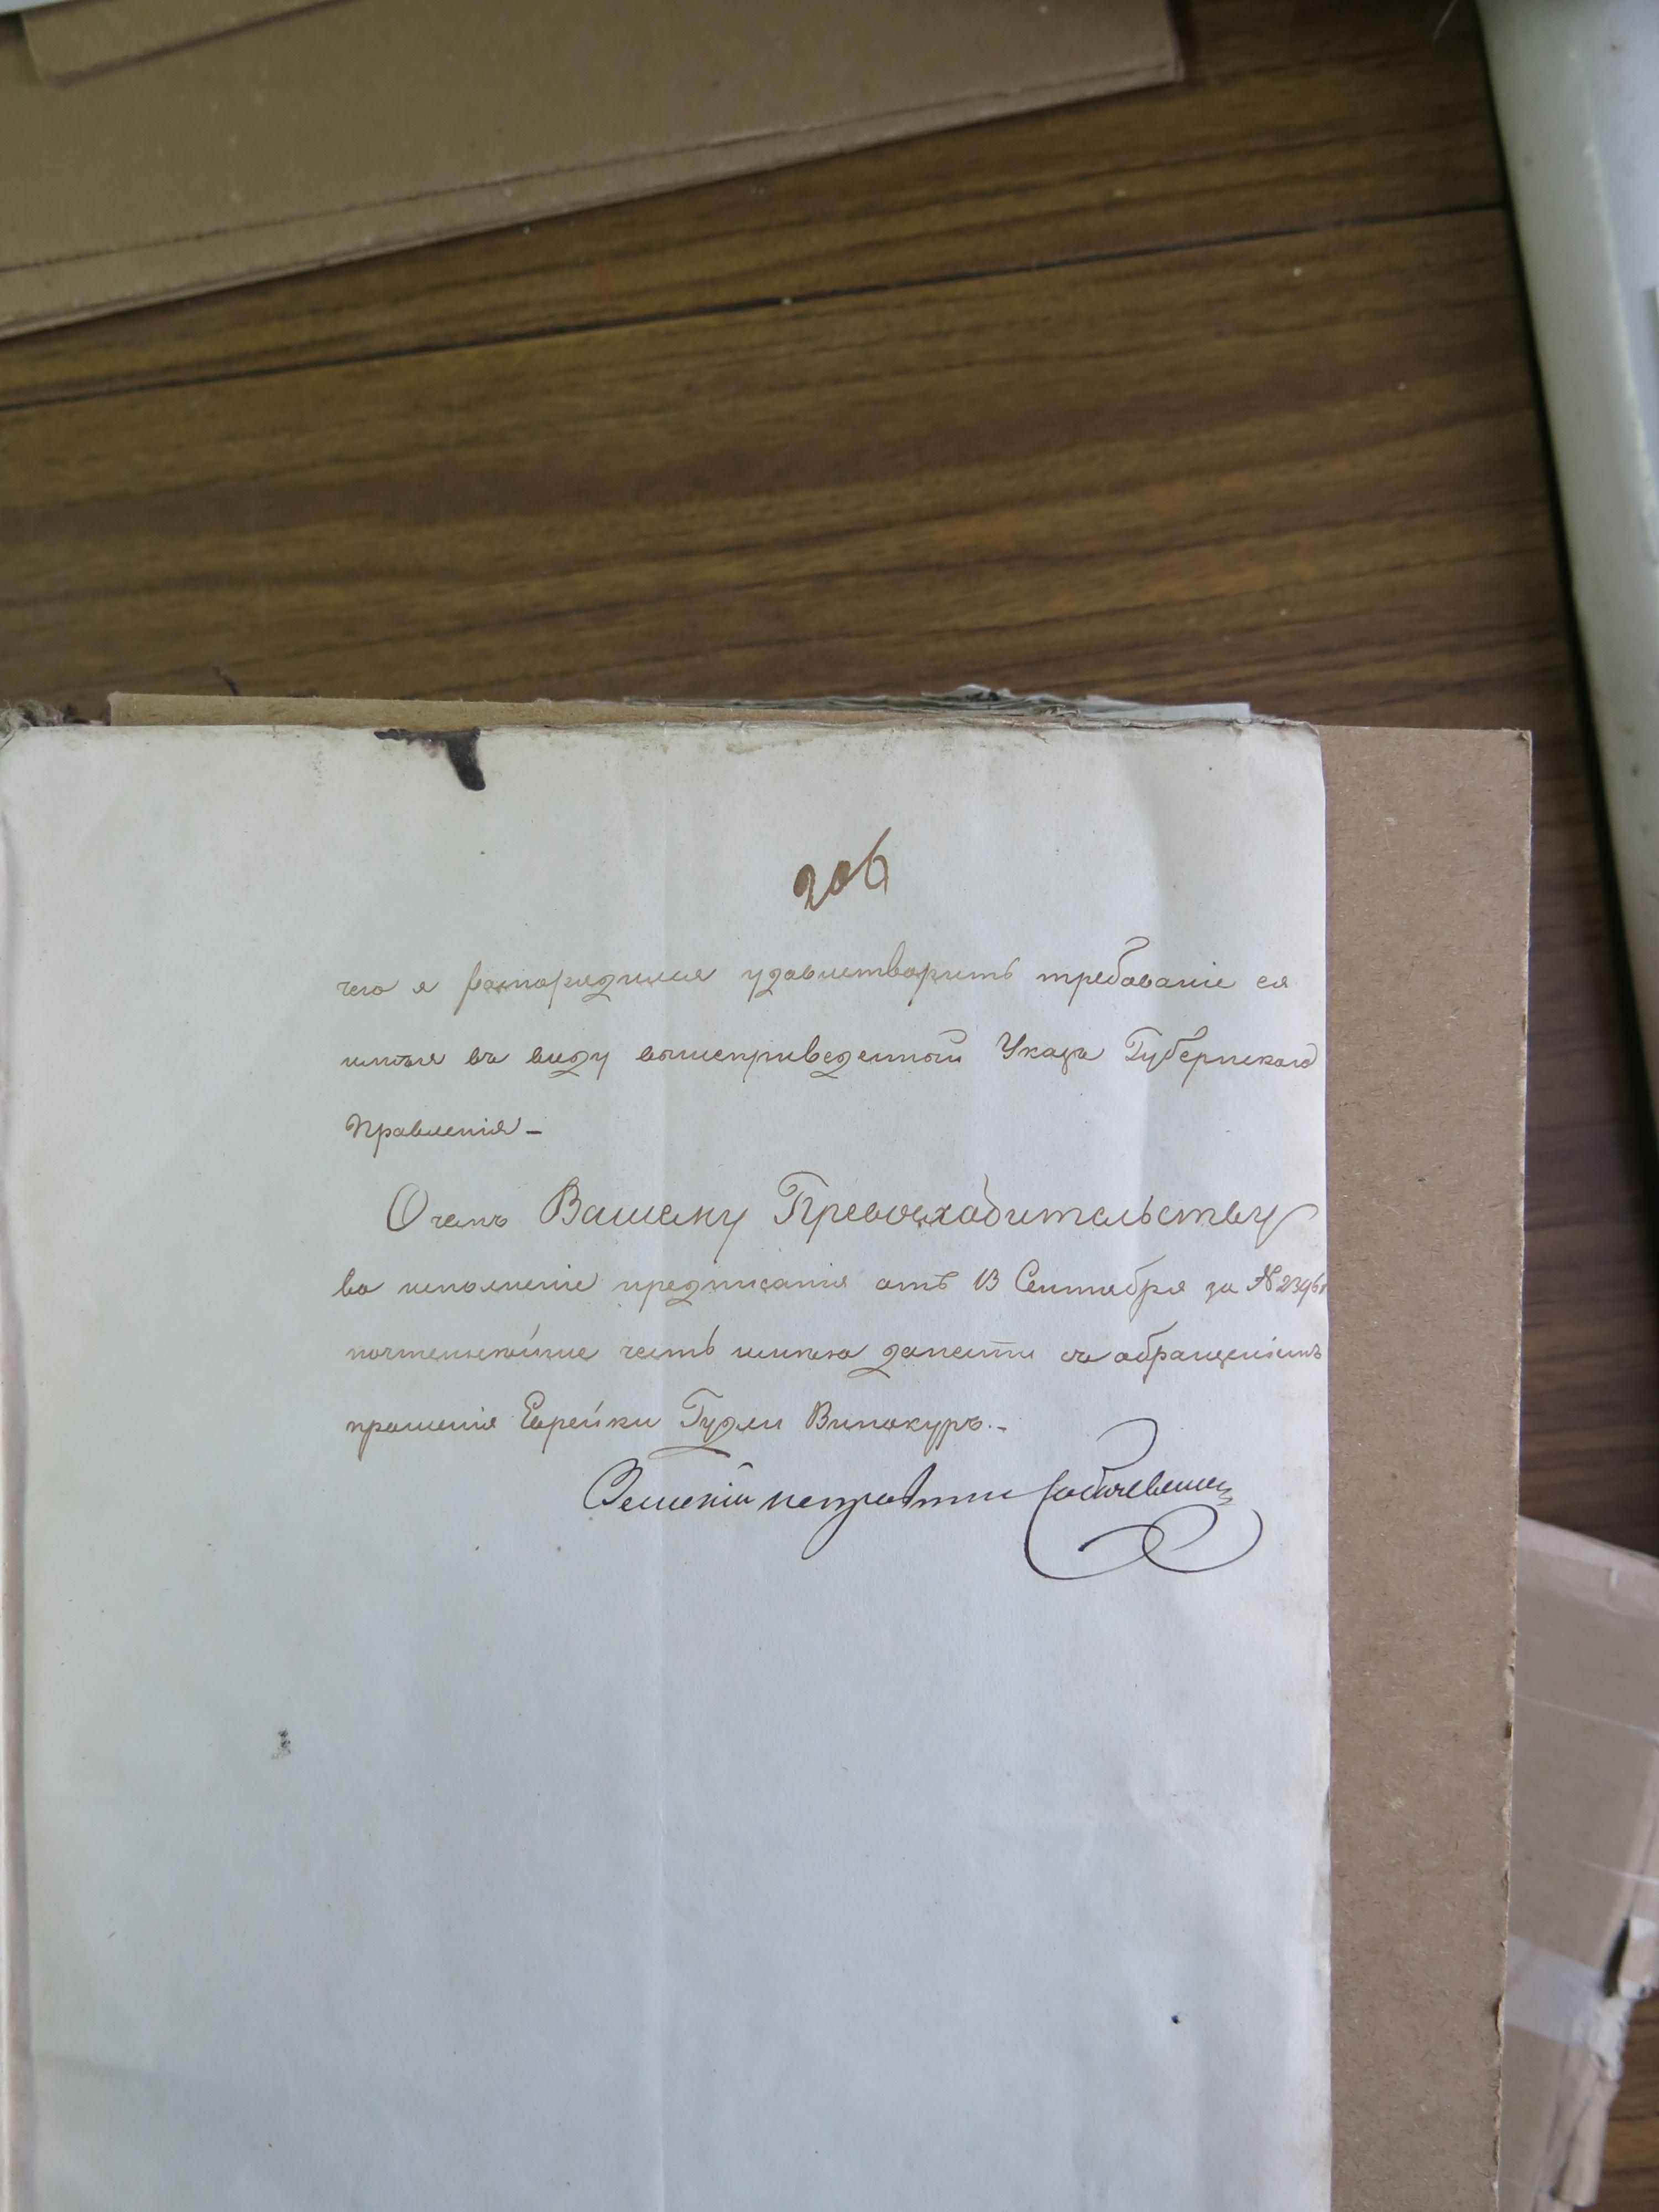 206
чего я распорядился удовлетворить требованіе ея
имѣя въ виду вышеприведенной Указъ Губернскаго
Правленія –
О чемъ Вашему Превосходительству
во исполненіе предписанія отъ 13 Сентября за №
почтительнѣйше честь имѣю донести съ обращеніемъ
прошенія Еврейки Гудли Винокуръ. –
Земскій исправникъ